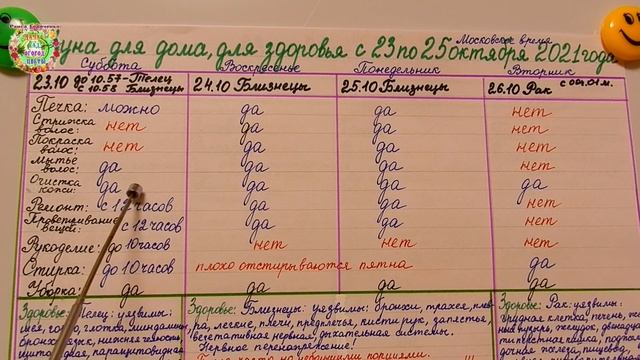 Московское время
Луна для дома, для здоровья с 23 по 25 октября 2021 года
Суббота Воскресенье Понедельник Вторник
23.10 до 10.57-Телец с 10.58 Близнецы 24.10 Близнецы 25.10 Близнецы 26.10 Рак
Пегка: можно да да нет
Стрижка волос: нет да да нет
Покраска волос: нет да да нет
Мытье волос: да да да нет
Очистка кожи: да да да да
Ремонт: с 12 часов да да нет
Проветривание вещей: с 12 часов да да нет
Рукоделие: до 10 часов нет нет нет
Стирка: до 10 часов плохо отстирываются пятна да
Уборка: да да да да
Здоровье: Телец: уязвимы:
шея, горло, глотка, миндалины,
нижняя челюсть,
Здоровье: Близнецы: уязвимы: бронхи, трахея,
легкие, плечи, предплечья, кисти рук, запястье,
вегетативная нервная и дыхательная системы.
Нервное перенапряжение!
Здоровье: Рак: уязвимы:
грудная клетка, печень,
желудок,